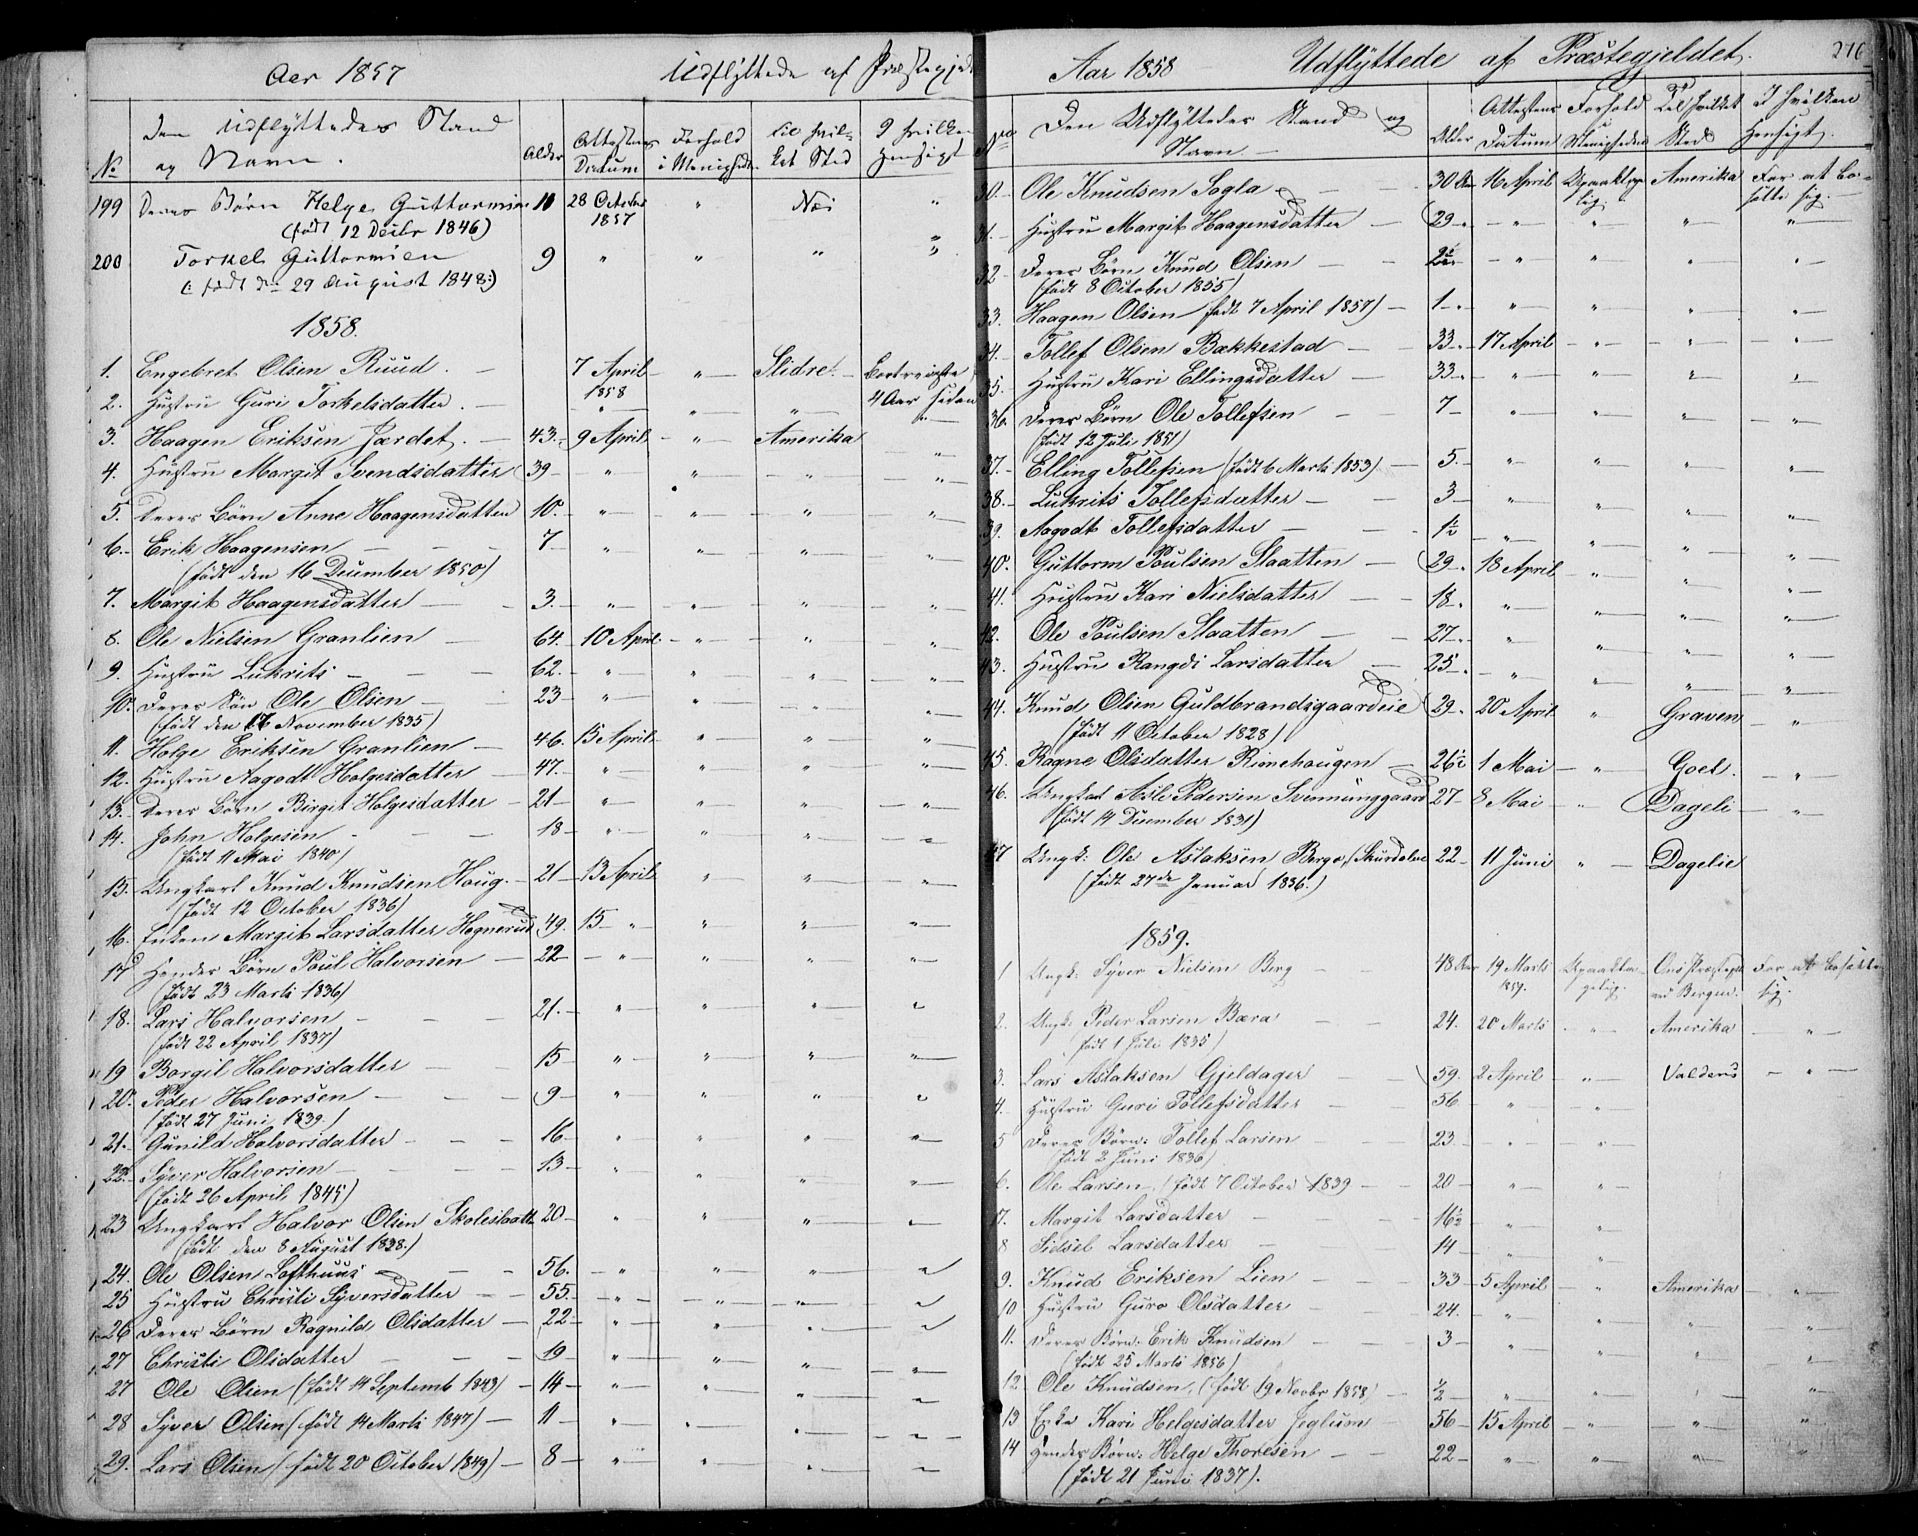 Aar 1857 Udflyttede af Præstegjeldet
No | Den Udflyttedes Stand og Navn. | Alder | Attestens Datum | Forhold i Menigheden | Til hvilket Sted | I hvilken Hensigt
199 Deres Börn Helge Guttormsen 11 28 October 1857 " Næs "
(född 12 Decbr 1846)
200 Torkel Guttormsen 9 " " " "
(: född den 29 August 1848:)
1858.
1. Engebret Olsen Ruud. – 7 April 1858 " Slidre. Bortreiste 4 Aar siden
2. Hustru Guri Torkelsdatter. – " " " "
3. Haagen Eriksen Jærdet. – 43. 9 April " Amerika "
4. Hustru Margit Svendsdatter 39 " " " "
5. Deres Börn Anne Haagensdatter 10. " " " "
6. Erik Haagensen 7 " " " "
(född den 16 December 1850)
7. Margit Haagensdatter 3. " " " "
8. Ole Nielsen Granlien 64. 10 April " " "
9. Hustru Lukrits 62. " " " "
10. Deres Sön Ole Olsen 23 " " " "
(född den 17 November 1835)
11. Holge Eriksen Granlien 46. 15 April " " "
12. Hustru Aagodt Holgesdatter 47. " " " "
13. Deres Börn Birgit Holgesdatter 21 " " " "
14. John Holgesen 18 " " " "
(född 11 Mai 1840)
15. Ungkarl Knud Knudsen Houg. 21 13 April " " "
(född 12 October 1836)
16. Enken Margit Larsdatter Hegnerud 49. 15 " " " "
17 Hendes Börn Poul Halvorsen 22 " " " "
(född 23 Marts 1836)
18. Lars Halvorsen 21. " " " "
(född 22 April 1837)
19 Borgil Halvorsdatter 15 " " " "
20. Peder Halvorsen 9 " " " "
(född 27 Juni 1839.)
21. Gunild Halvorsdatter 16 " " " "
22. Syver Halvorsen 13 " " " "
(född 26 April 1845)
23 Ungkarl Halvor Olsen Skoleslaatt 20 " " " "
(född den 8 August 1838.)
24. Ole Olsen Lofthuus 56. " " " "
25 Hustru Christi Syversdatter 55. " " " "
26 Deres Börn Ragnild Olsdatter 22 " " " "
27 Christi Olsdatter 19 " " " "
27 Ole Olsen (född 14 Septemb 1843) 14 " " " "
28 Syver Olsen (född 14 Marts 1847) 11 " " " "
29. Lars Olsen (född 20 October 1849) 8 " " " "
Aar 1858 Udflyttede af Præstegjeldet. 276
No | Den Udflyttedes Stand og Navn. | Alder | Attestens Datum | Forhold i Menigheden | Til hvilket Sted | I hvilken Hensigt.
30. Ole Knudsen Sogla 30 Aar 16 April Upaaklagelig. Amerika For at bosætte sig.
31. Hustru Margit Haagensdatter 29 " " " "
32 Deres Börn Knud Olsen 2½ " " " "
(född 8 October 1855)
33. Haagen Olsen (född 7 April 1857) 1 " " " "
34. Tollef Olsen Bækkestad 33 17 April " " "
35. Hustru Kari Ellingsdatter 33 " " " "
36. Deres Börn Ole Tollefsen 7 " " " "
(född 12 Juli 1851)
37. Elling Tollefsen (född 6 Marts 1853) 5. " " " "
38. Lukrits Tollefsdatter 3 " " " "
39. Aagodt Tollefsdatter ½ " " " "
40. Guttorm Poulsen Slaatten 29 18 April " " "
41. Hustru Kari Nielsdatter 18 " " " "
42. Ole Poulsen Slaatten 27 " " " "
43. Hustru Rangdi Larsdatter 25 " " " "
44. Knud Olsen Guldbrandsgaardeie 29 20 April " Graven "
(född 11 October 1828)
45. Ragne Olsdatter Rimehaugen 26½ 1 Mai " Goel. "
46. Ungkarl Asle Pedersen Svenunggaard 27 8 Mai " Dageli "
(född 14 December 1831)
47 Ungk: Ole Aslaksen Berge, (Skurdalen 22 11 Juni " Dagelie
(född 27de Januar 1836.)
1859.
1 Ungk: Syver Nielsen Berg 48 Aar 19 Marts 1859. Upaaklagelig. Ous Præstegj. ved Bergen. For at bosætte sig.
2. Ungk: Peder Larsen Bæra 24. 20 Marts " Amerika "
född 1 Juli 1835)
3. Lars Aslaksen Gjeldager 59. 2 April " Valders "
4. Hustru Guri Tollefsdatter 56 " "
5 Deres Börn: Tollef Larsen 23 " "
(född 2 Juni 1836)
6. Ole Larsen, (född 7 October 1839 20 " "
7. Margit Larsdatter 16½ " "
8 Sidsel Larsdatter 14 " "
9. Knud Eriksen Lien 33 5 April " Amerika "
10 Hustru Guro Olsdatter 24. " " " "
11. Deres Börn: Erik Knudsen 3 " " " "
(född 25 Marts 1856)
12 Ole Knudsen, (född 19 Novbr 1858) ½ " " " "
13 Enke Kari Helgesdatter Jeglum 56 15 April " " "
14 Hendes Börn: Helge Thoresen 22 " " " "
(född 21 Juni 1837).